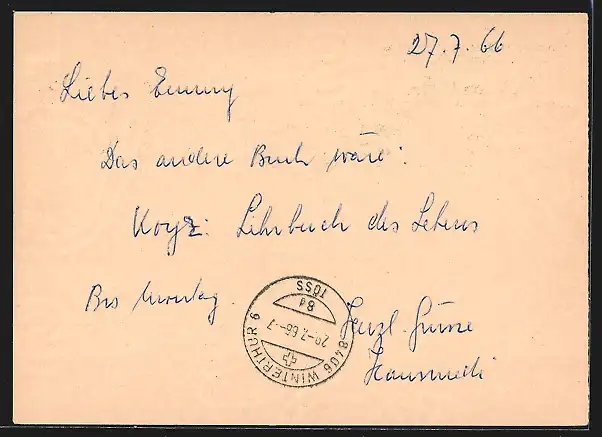 27.7.66
Liebes Emmy
Das andere Buch wäre:
Lehrbuch des Lebens
Bis Montag.
Herzl. Grüsse
Hansruedi
8406 WINTERTHUR 6
TÖSS
8d
29-7.66-7